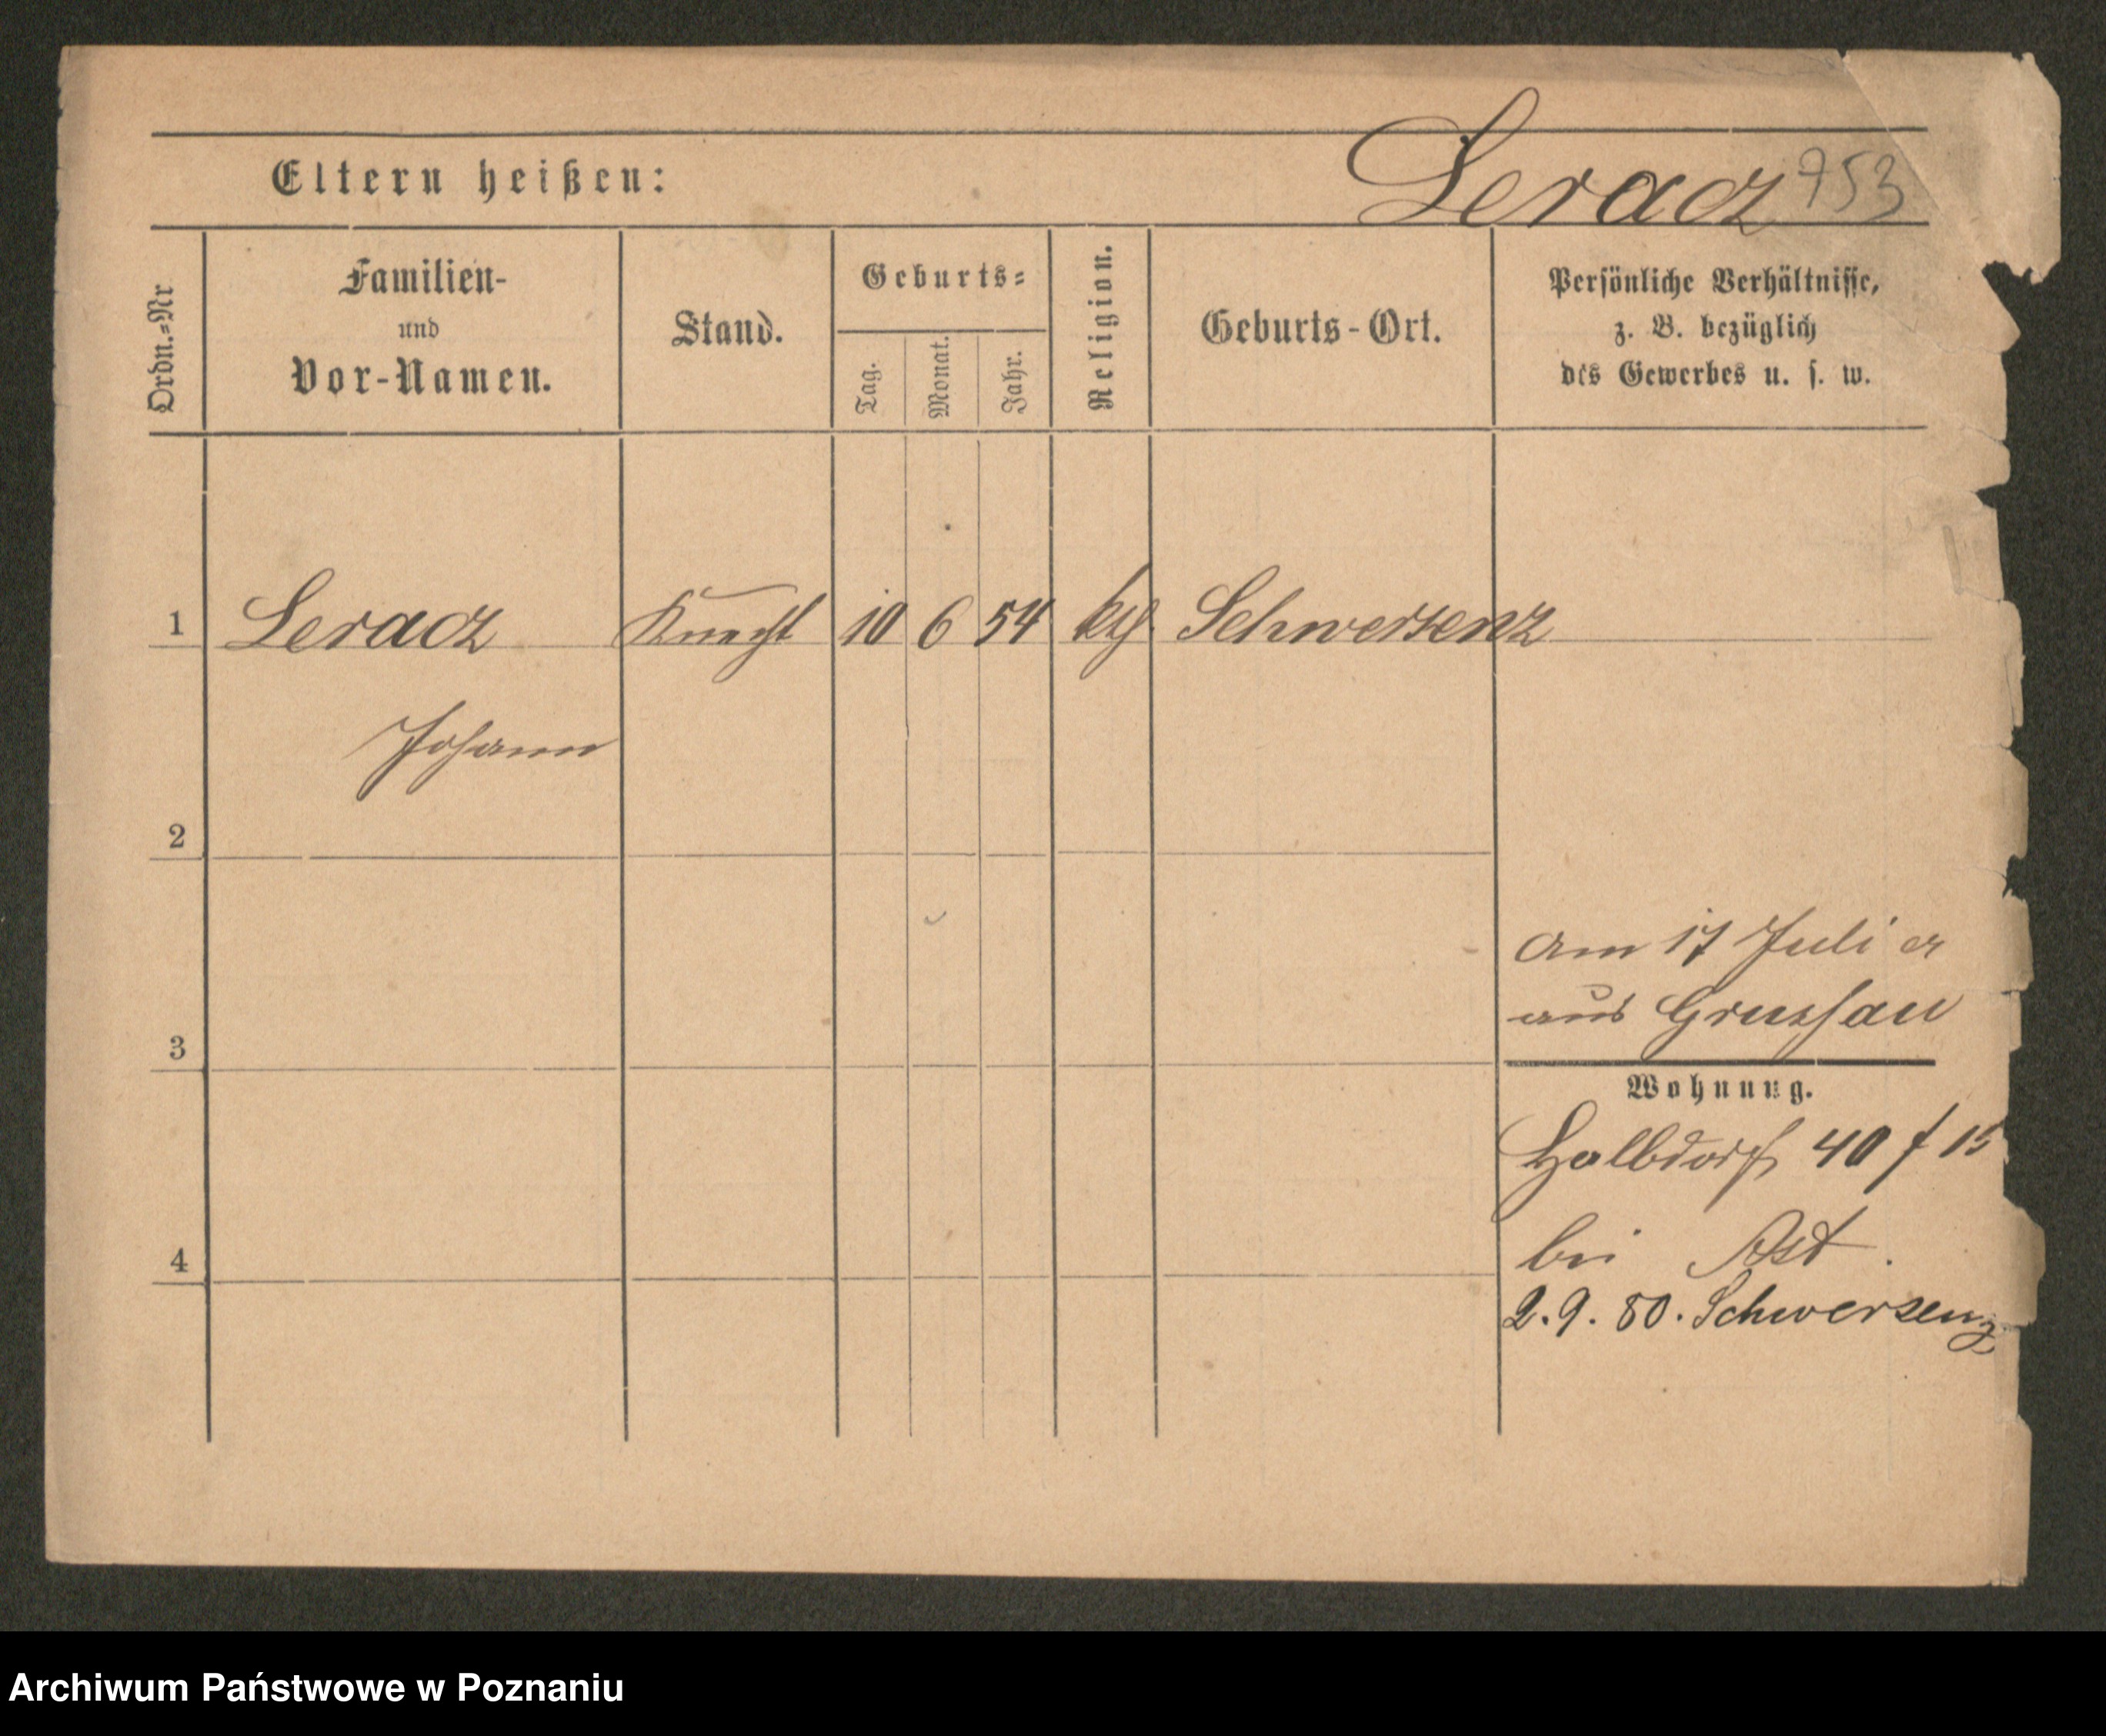 Eltern heißen:
Leracz 753
Ordn.=Nr
Familien-
und
Vor-Namen.
Stand.
Geburts=
Tag.
Monat.
Jahr.
Religion.
Geburts-Ort.
Persönliche Verhältnisse,
z. B. bezüglich
des Gewerbes u. s. w.
1 Leracz Knecht 10 6 54 kth. Schwersenz
Johann
2
am 17 Juli cr
aus Gruszau
3
Wohnung.
Halbdorf 40 f 15
bei Ast.
4
2.9.80. Schwersenz
Archiwum Państwowe w Poznaniu